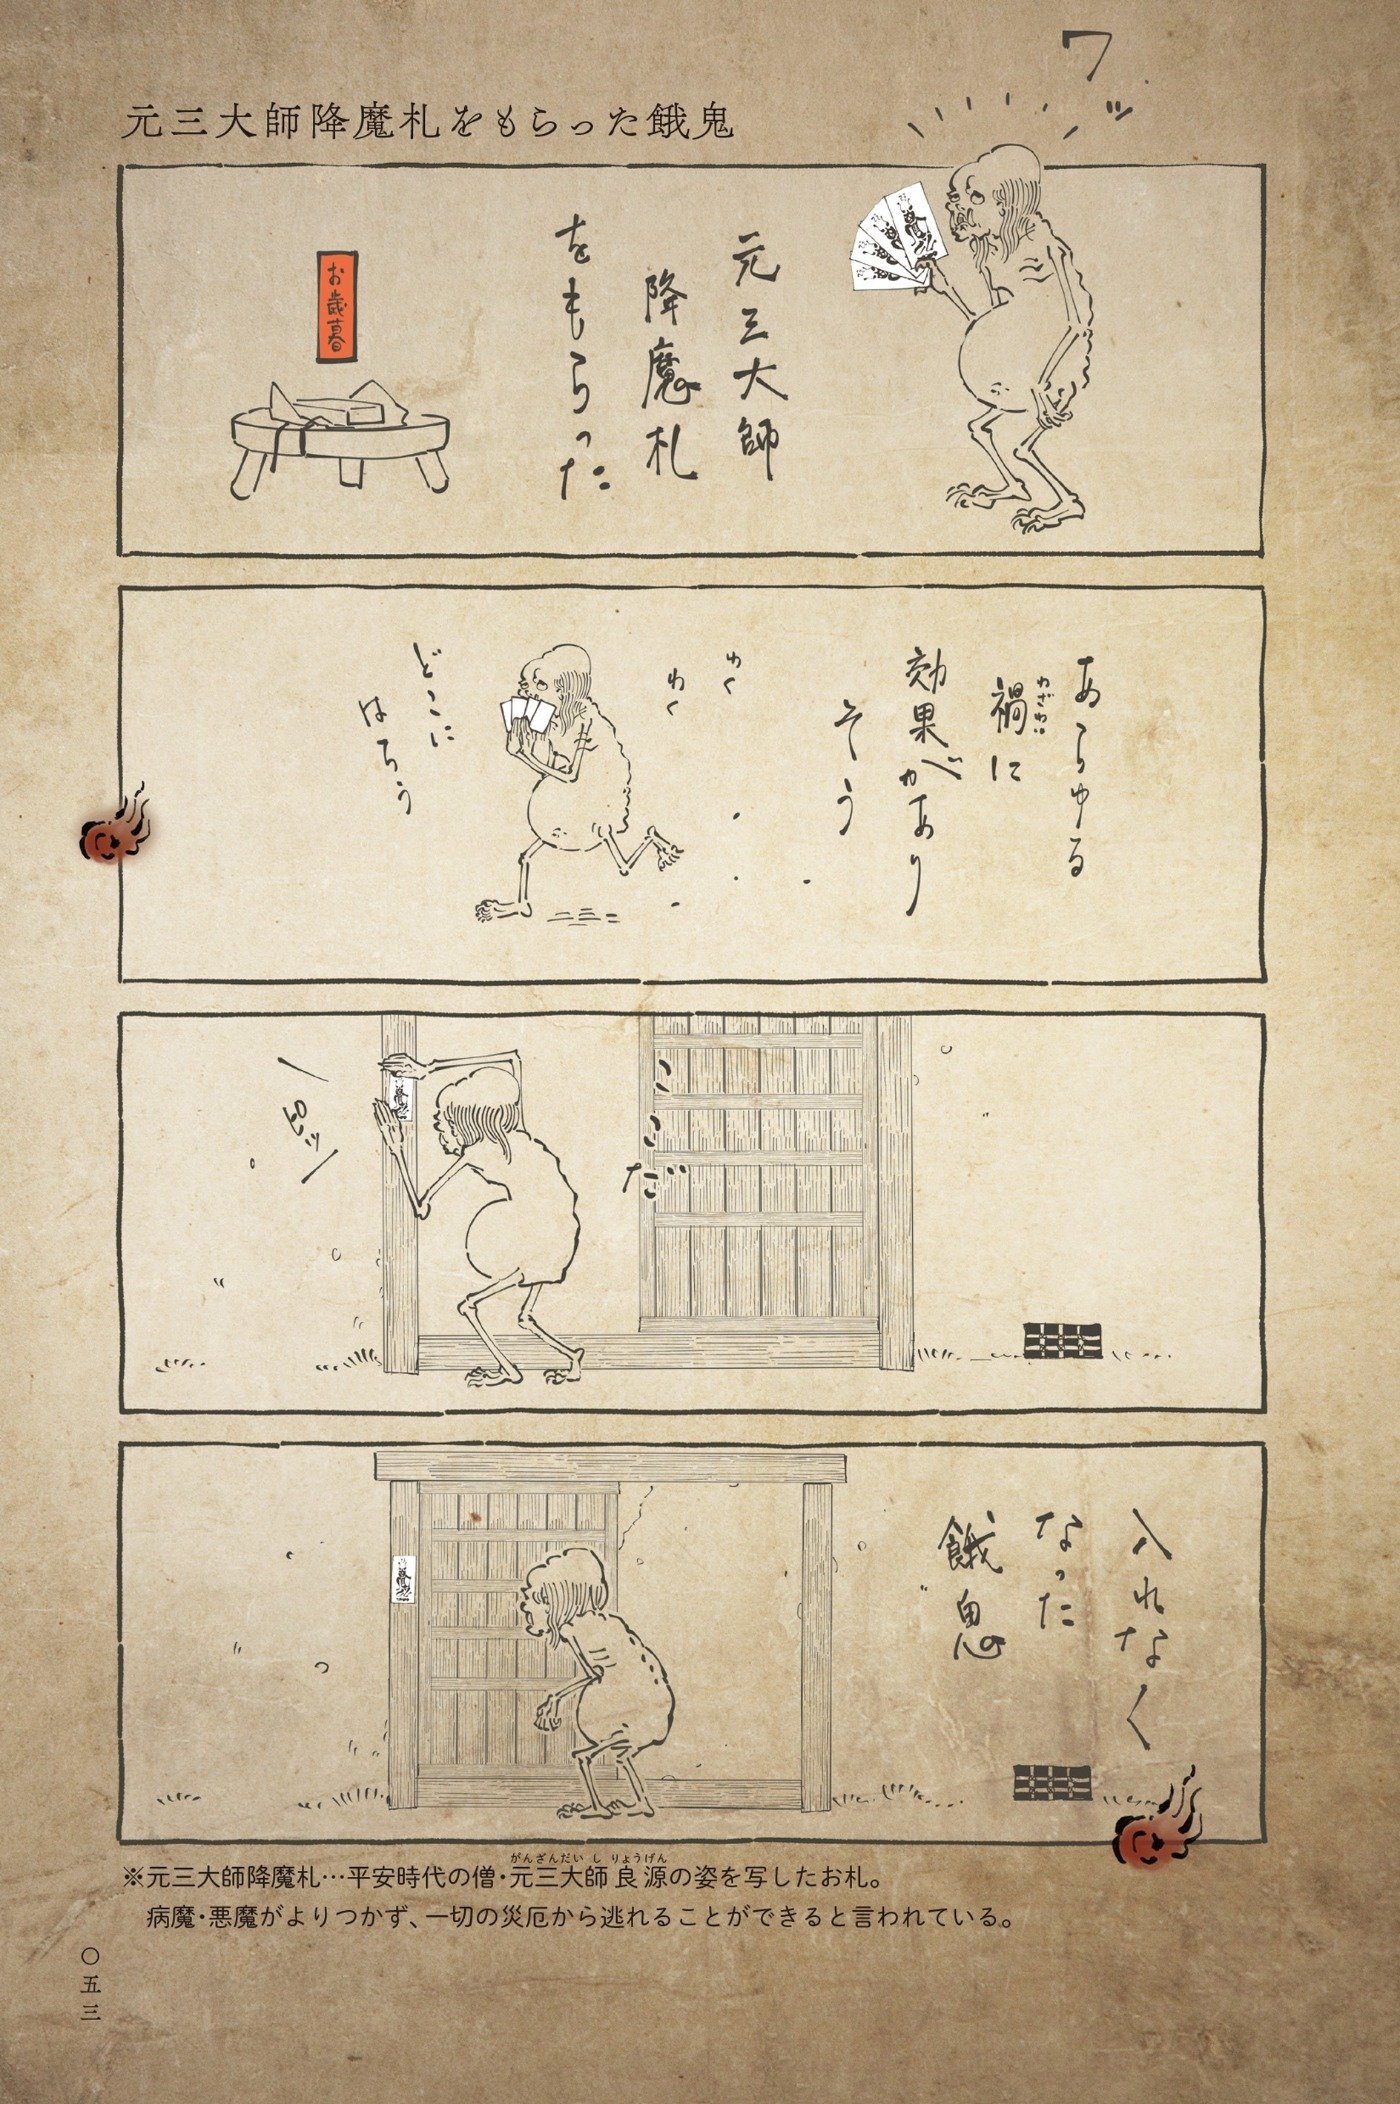 元三大師降魔札をもらった餓鬼
ワッ
元三大師
降魔札
をもらった
お歳暮
あらゆる
禍に
わざわい
効果があり
そう
わく
わく
どこに
はろう
ここだ
ピッ
入れなく
なった
餓鬼
※元三大師降魔札…平安時代の僧・元三大師良源の姿を写したお札。
がんざんだいし りょうげん
病魔・悪魔がよりつかず、一切の災厄から逃れることができると言われている。
〇五三